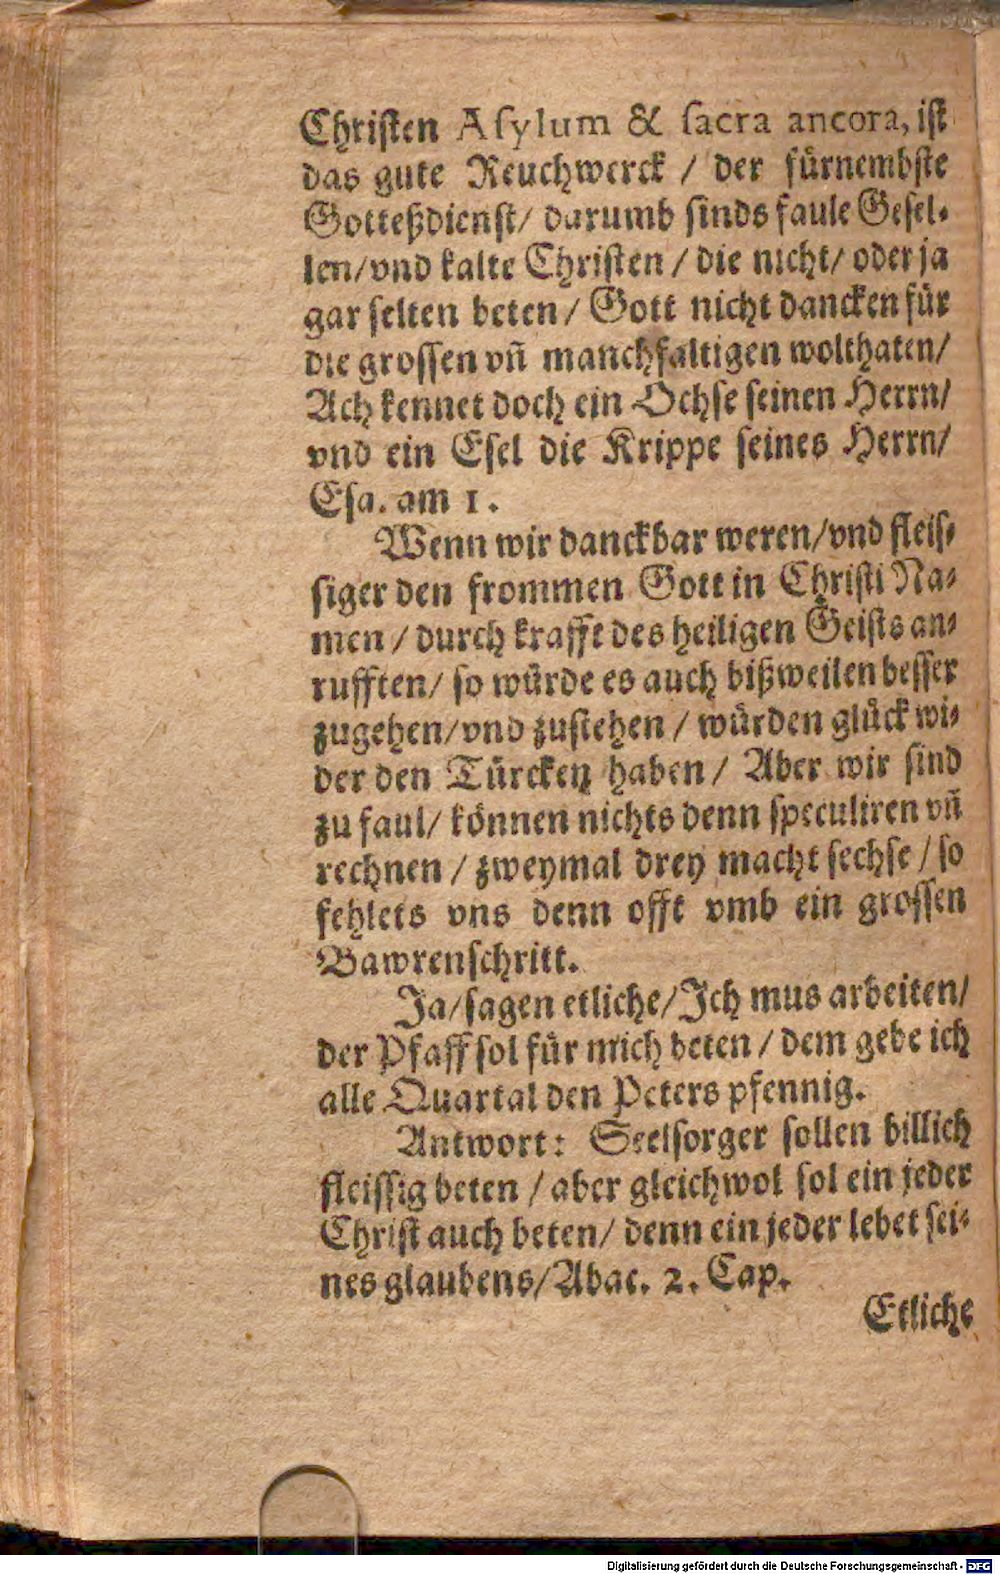 Christen Asylum & sacra ancora, ist
das gute Reuchwerck / der fürnembste
Gotteßdienst/ darumb sinds faule Gesel-
len/vnd kalte Christen / die nicht/ oder ja
gar selten beten / Gott nicht dancken für
die grossen vñ manchfaltigen wolthaten/
Ach kennet doch ein Ochse seinen Herrn/
vnd ein Esel die Krippe seines Herrn/
Esa. am 1.
Wenn wir danckbar weren/vnd fleis-
siger den frommen Gott in Christi Na-
men / durch krafft des heiligen Geists an-
rufften/ so würde es auch bißweilen besser
zugehen/vnd zustehen / würden glück wi-
der den Türcken haben / Aber wir sind
zu faul/ können nichts denn speculiren vñ
rechnen / zweymal drey macht sechse / so
fehlets vns denn offt vmb ein grossen
Bawrenschritt.
Ja/sagen etliche/Ich mus arbeiten/
der Pfaff sol für mich beten / dem gebe ich
alle Quartal den Peters pfennig.
Antwort: Seelsorger sollen billich
fleissig beten / aber gleichwol sol ein jeder
Christ auch beten/ denn ein jeder lebet sei-
nes glaubens/Abac. 2. Cap.
Etliche
Digitalisierung gefördert durch die Deutsche Forschungsgemeinschaft - DFG